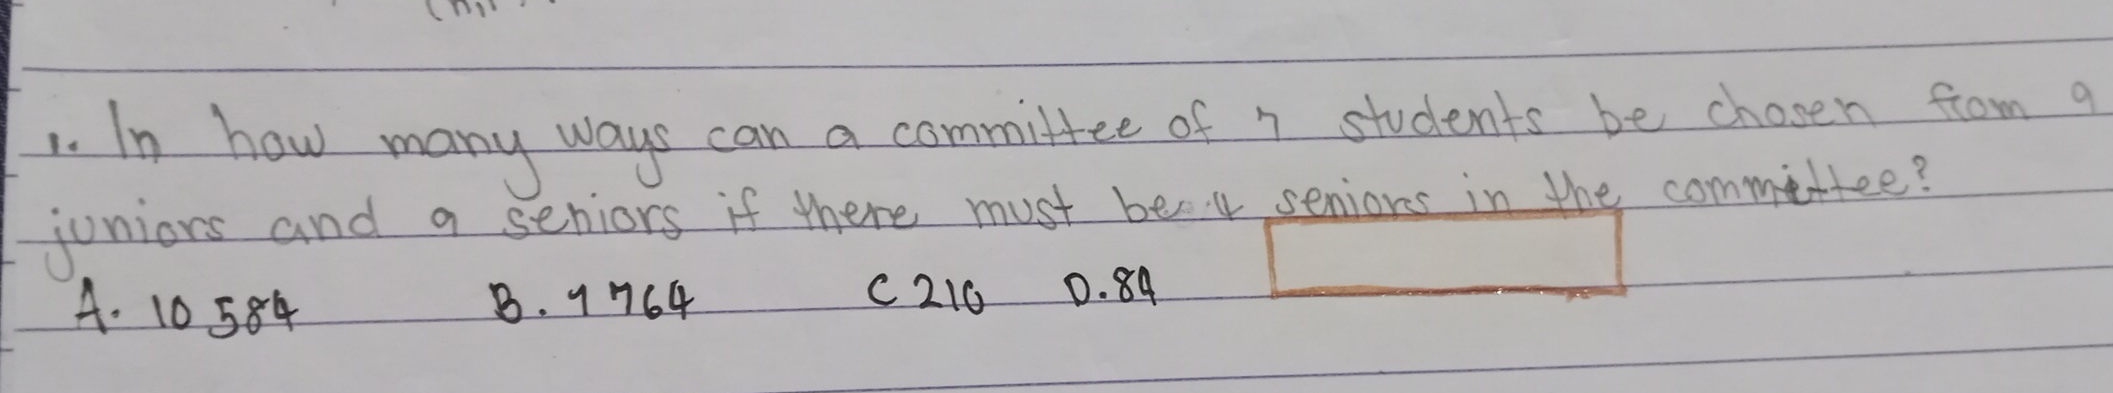 1. In how many ways can a committee of 7 students be chosen from 9
juniors and 9 seniors if there must be 4 seniors in the committee?
A. 10 584 B. 1 764 C 210 D. 84